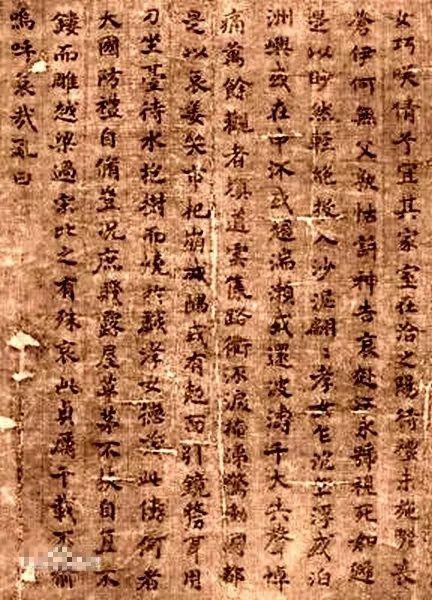 女巧咲倩予宜其家室在洽之陽待禮未施嗟喪
蒼伊何無父孰怙訴神告哀赴江永號視死如歸
是以眇然輕絕投入沙泥翩〻孝女乍沉乍浮或泊
洲嶼或在中流或趨湍瀨或還波濤千夫失聲悼
痛萬餘觀者填道雲集路衢流淚掩涕驚動國都
是以哀姜哭市杞崩城隅或有尅面引鏡剺耳用
刀坐臺待水抱樹而燒於戲孝女德茂此儔何者
大國防禮自脩豈況庶賤露屋草茅不扶自直不
鏤而雕越梁過宋比之有殊哀此貞厲千載不渝
嗚呼哀哉亂曰